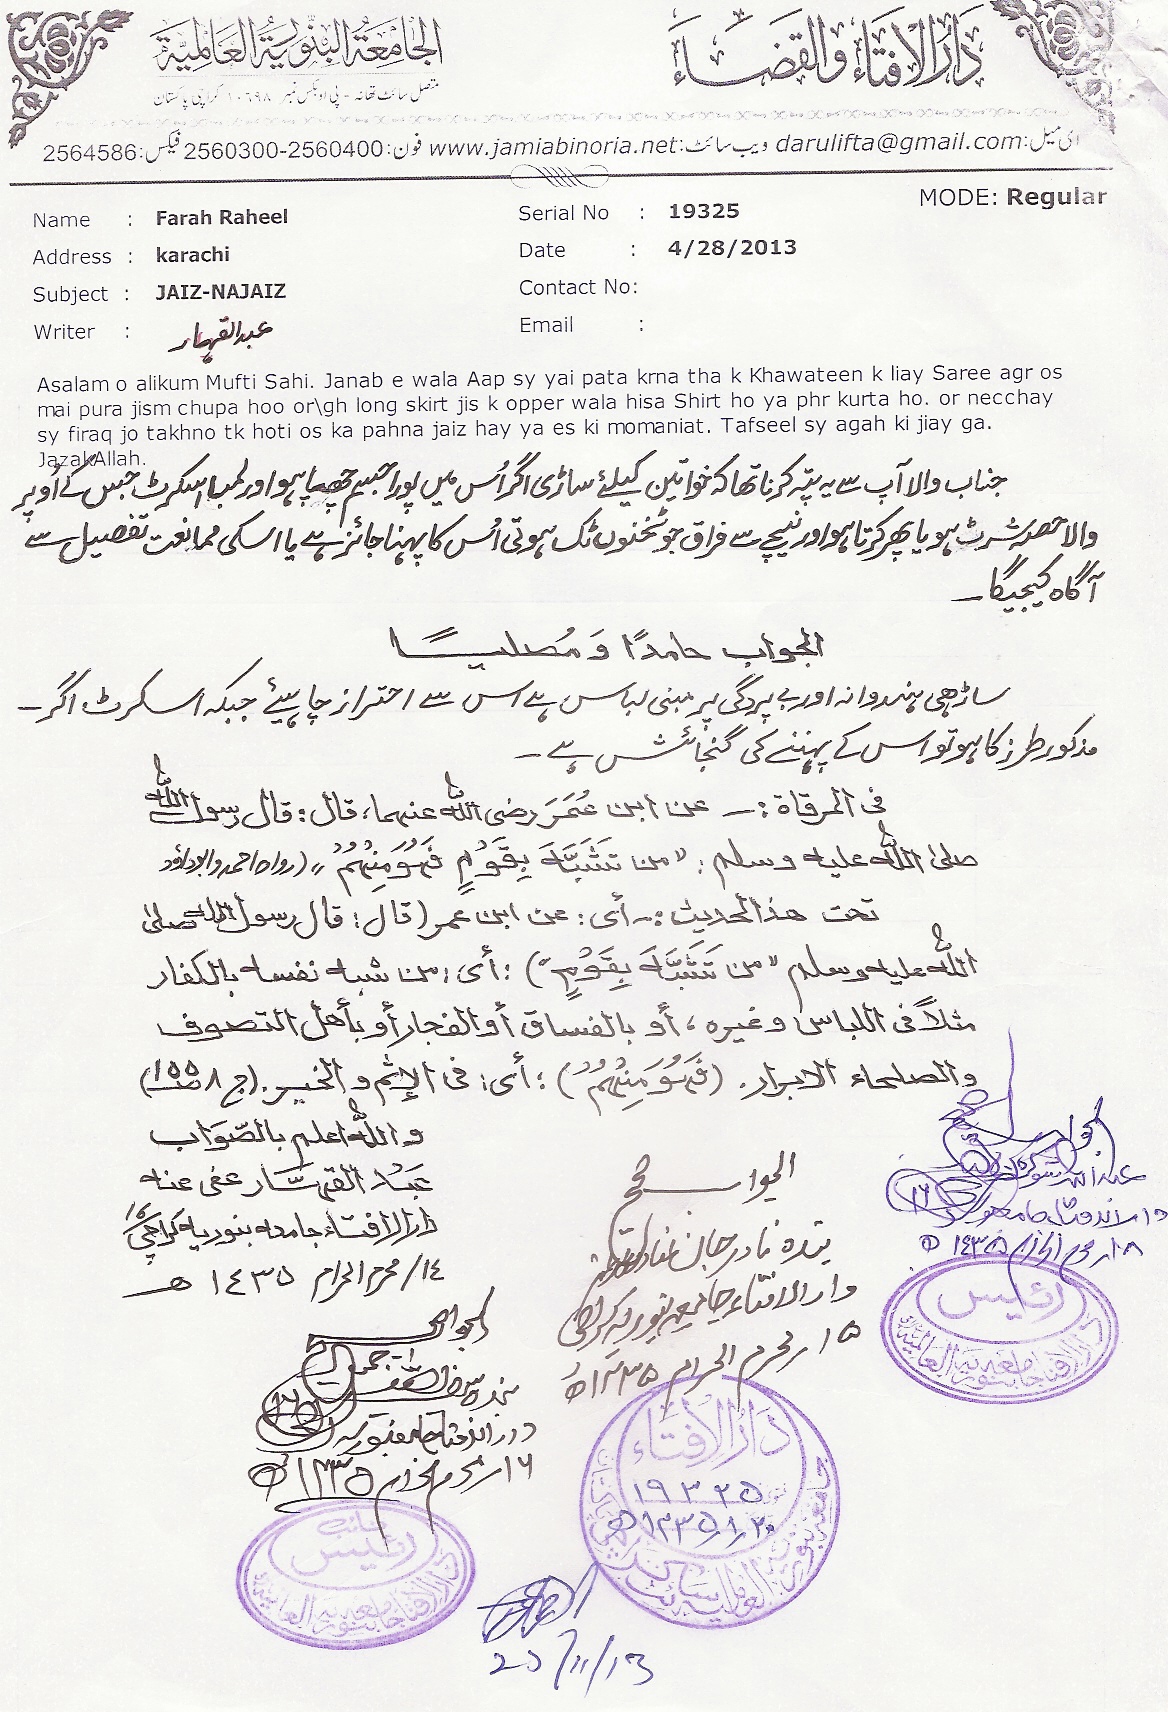 الجامعۃ البنوریۃ العالمیۃ
دَارُ الاِفتَاء وَالقضَاء
متصل سائٹ تھانہ - پی او بکس نمبر ۱۰۶۹۸ کراچی پاکستان
ای میل:darulifta@gmail.com ویب سائٹ:www.jamiabinoria.net فون:2560300-2560400 فیکس:2564586
MODE: Regular
Name : Farah Raheel
Serial No : 19325
Address : karachi
Date : 4/28/2013
Subject : JAIZ-NAJAIZ
Contact No:
Writer : عبدالقہار
Email :
Asalam o alikum Mufti Sahi. Janab e wala Aap sy yai pata krna tha k Khawateen k liay Saree agr os
mai pura jism chupa hoo or\gh long skirt jis k opper wala hisa Shirt ho ya phr kurta ho. or necchay
sy firaq jo takhno tk hoti os ka pahna jaiz hay ya es ki momaniat. Tafseel sy agah ki jiay ga.
JazakAllah.
جناب والا آپ سے یہ پتہ کرنا تھا کہ خواتین کیلئے ساڑی اگر اُس میں پورا جسم چھپا ہو اور لمبا اسکرٹ جس کے اُوپر
والا حصہ شرٹ ہو یا پھر کرتا ہو اور نیچے سے فراق جو ٹخنوں تک ہوتی اُس کا پہننا جائز ہے یا اسکی ممانعت تفصیل سے
آگاہ کیجیگا ۔
الجواب حامدًا وَ مُصلیــًا
ساڑھی ہندوانہ اور بے پردگی پر مبنی لباس ہے اس سے احتراز چاہیئے جبکہ اسکرٹ اگر ۔
مذکور طرز کا ہو تو اس کے پہننے کی گنجائش ہے ۔
فی المرقاۃ :۔ عن ابن عُمَرَ رضی اللہ عنہما، قال : قال رسول اللہ
صلیٰ اللہ علیہ وسلم : "مَن تَشَبَّہَ بِقَوْمٍ فَہُوَ مِنْہُمْ" (رواہ احمد و ابوداؤد
تحت ھذالحدیث :۔ أی : عن ابن عمر (قال : قال رسول اللہ صلیٰ
اللہ علیہ وسلم "مَن تَشَبَّہَ بِقَوْمٍ") : أی : من شبہ نفسہ بالکفار
مثلاً فی اللباس وغیرہ ، أو بالفساق أو الفجار أو بأھل التصوف
والصلحاء الابرار. (فَہُوَ مِنْہُمْ) : أی : فی الإثم و الخیر. (ج ۸ صـ ۱۵۵)
و اللہ اعلم بالصَّوَاب
عَبْد القہَّار عفی عنہ
دارالافتاء جامعہ بنوریہ کراچی ۱۶
۱۴/ محرم الحرام ۱۴۳۵ ھ
الجواب صحیح
بندہ نادر جان
دارالافتاء جامعہ بنوریہ کراچی
۱۵ / محرم الحرام ۱۴۳۵ھ
الجواب صحیح
عبداللہ شوکت
دارالافتاء جامعہ بنوریہ
۱۸ / محرم الحرام ۱۴۳۵ ھ
رئیس
دارالافتاء جامعہ بنوریہ العالمیہ
الجواب صحیح
بندہ سیف اللہ جمیل
دارالافتاء جامعہ بنوریہ
۱۶ / محرم الحرام ۱۴۳۵ ھ
نائب
رئیس
دارالافتاء جامعہ بنوریہ العالمیہ
دَارُ الاِفتَاء
۱۹۳۲۵
۲۰ / ۱ / ۱۴۳۵ھ
جامعہ بنوریہ العالمیہ سائٹ کراچی
25/11/13